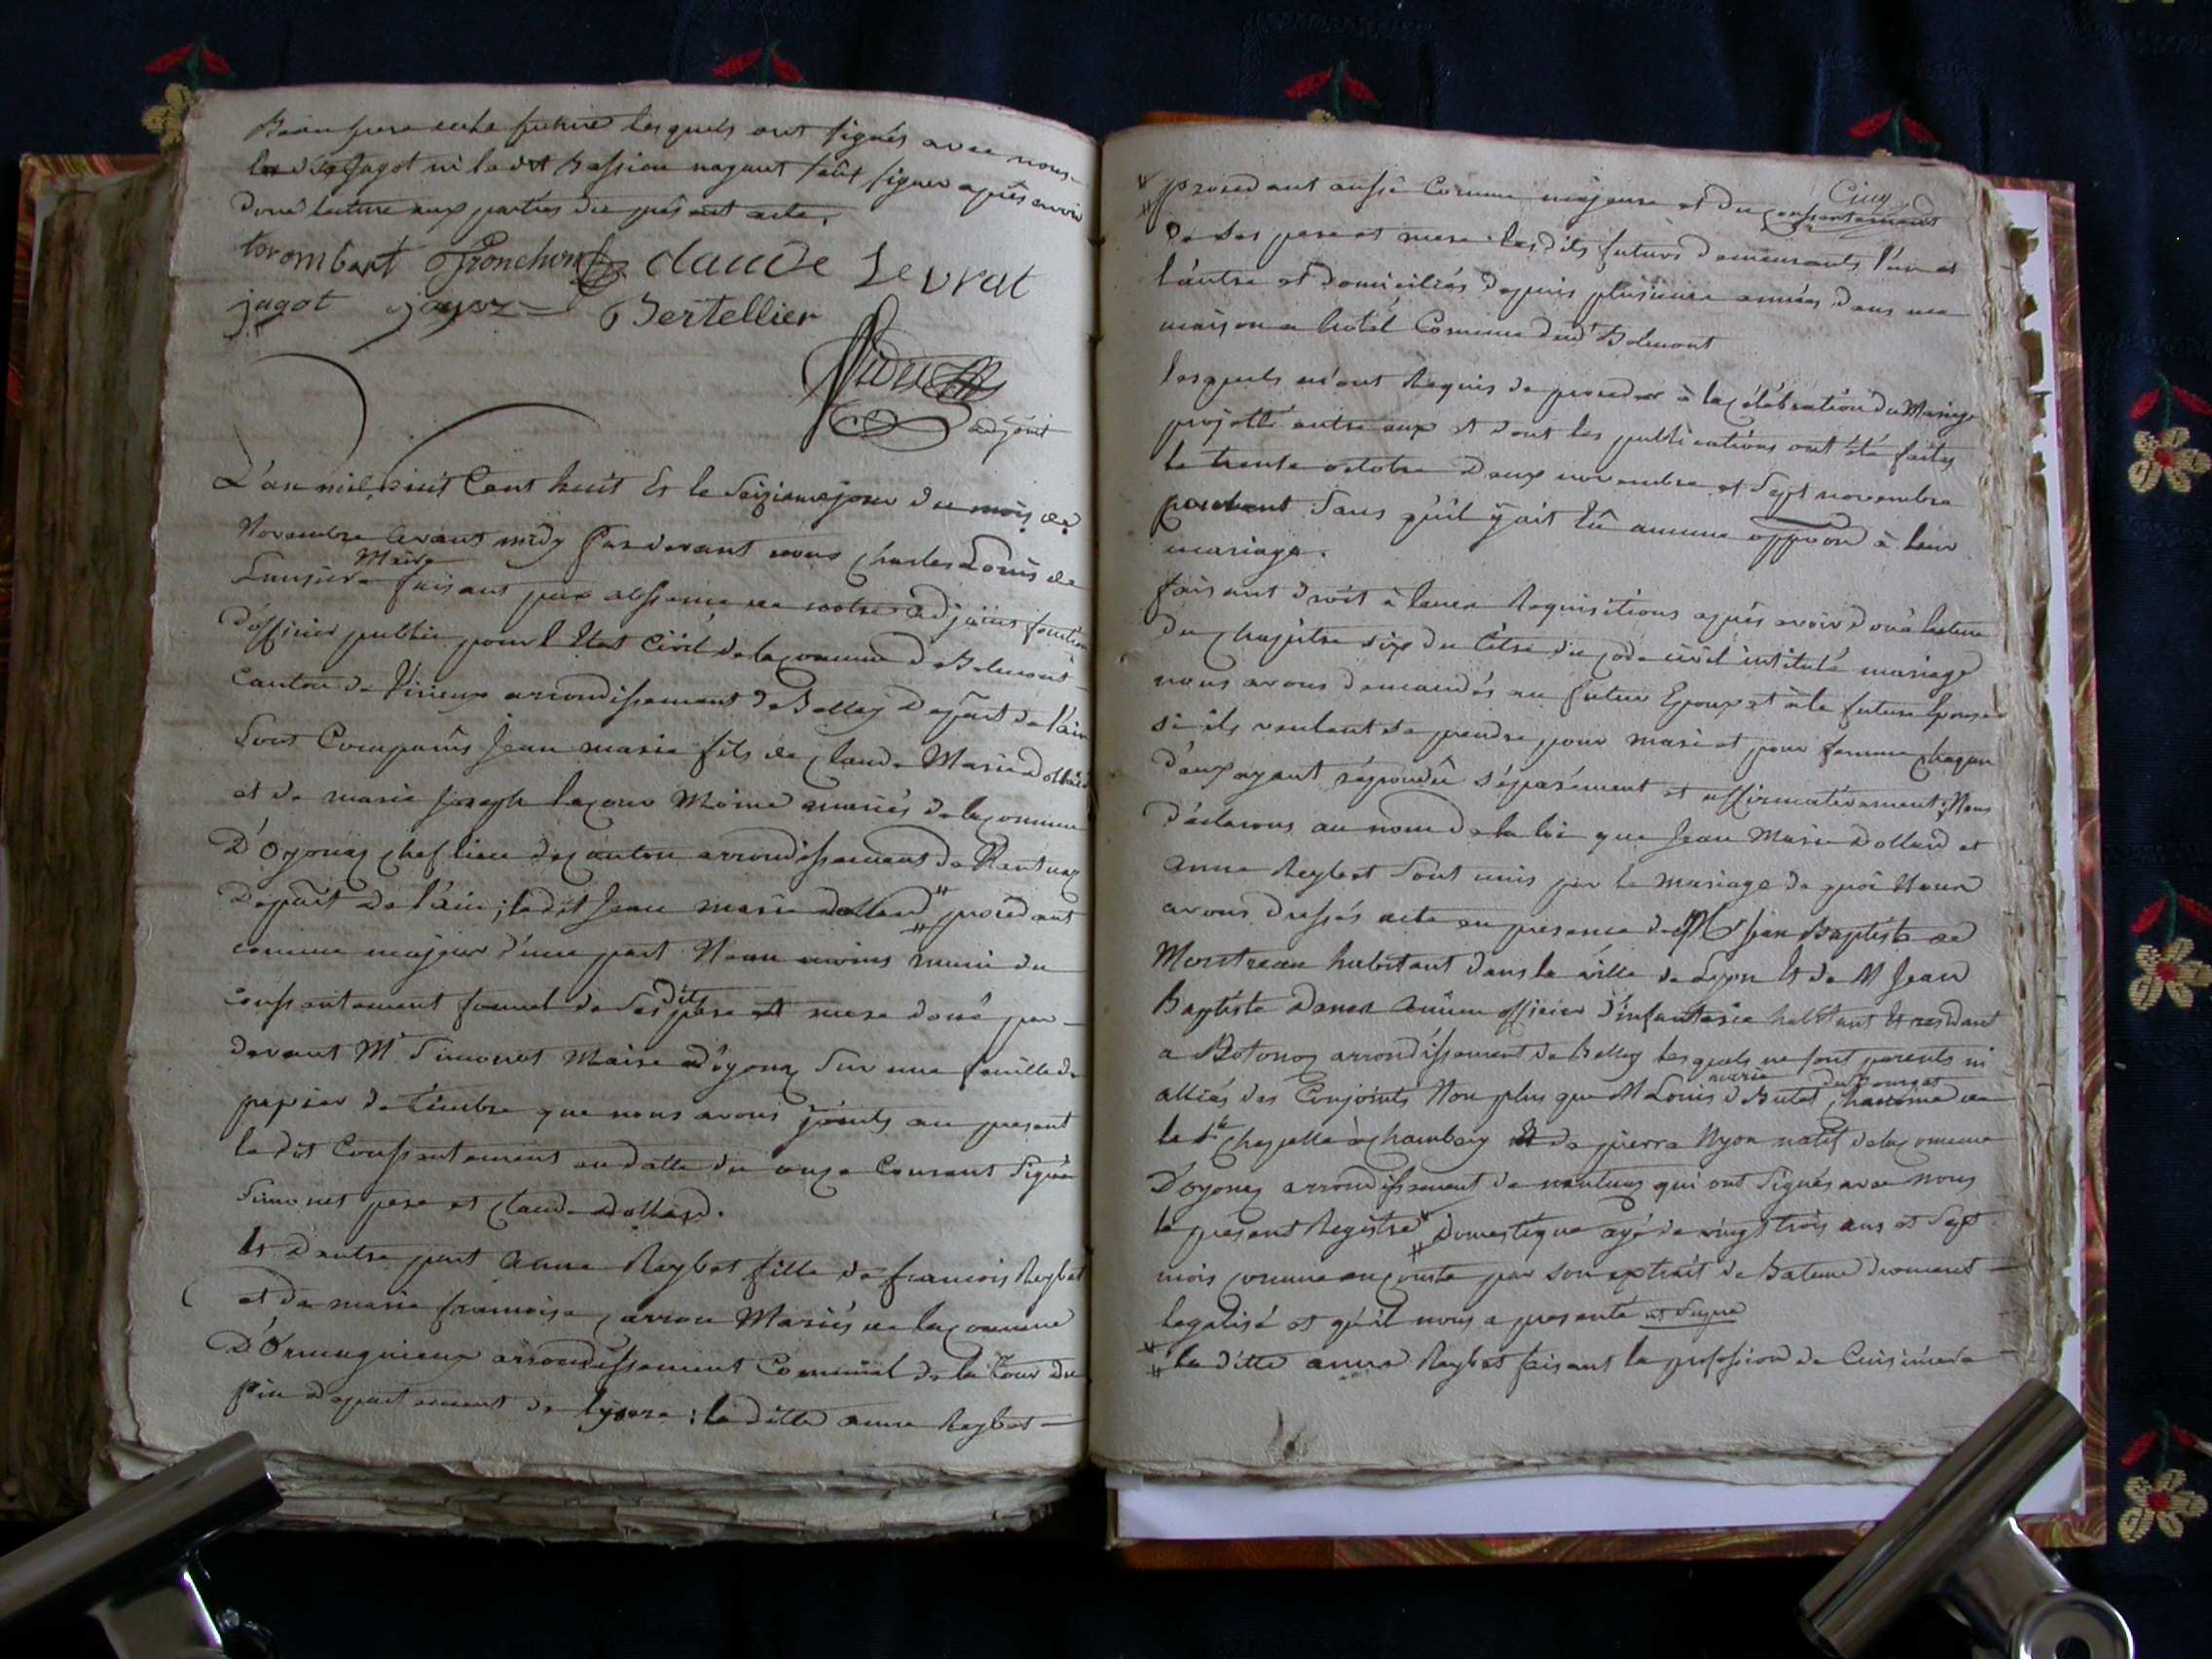 Beau frere de la future lesquels ont signés avec nous
les dits Jagot ni la dte Bassieu nayant sçût signer après avoir
doné lecture aux parties du présent acte.
torombert fronchon claude Levrat
jagot jayoz Bertellier
adjoint
L'an mil huit Cent huit Et le Seizieme jour du mois de
Novembre avant midy Pardevant nous Charles Louis de
Maire
faisant par absence de notre adjoint fonction
d'officier public pour l'Etat Civil de la comune de Belmont
Canton de Virieux arrondissement de Belley Depart de l'ain
Sont Comparûs Jean marie fils de Claude Marie Dollard
et de marie Joseph Moine mariés de la comune
D'Oyonax chef lieu de canton arrondissement de Nantuax
Depart De l'ain; le dit Jean marie Dollard # procedant
comme majeur d'une part Néan moins muni du
dits
consentement formel de Ses père et mere doné par
devant Mr Simonet Maire d'oyonax Sur une feuille de
papier de timbre que nous avons joints au present
le dit Consentement en datte du onze Courant Signé
Simonet pere et Claude Dollard.
Et D'autre part Anne Reybet fille de francois Reybet
et de marie francoise Carron Mariés de la comune
D' arrondissement Comunal de la Tour du
pin departement de lysere; la ditte anne Reybet
Cinq
# procedant aussi Comme majeure et du consentement
de Ses pere et mere les dits futurs demeurants l'un et
l'autre et domiciliés depuis plusieurs années dans ma
maison a hotél Comune dud' Belmont
lesquels m'ont Requis de proceder à la célébration du Mariage
projetté entre eux et dont les publications ont été faites
le trente octobre Deux novembre et Sept novembre
Sans qu'il y ait Eû aucune oppon à leur
mariage.
faisant droit à leurs Requisitions après avoir doné lecture
du chapitre six du titre du code civil intitulé mariage
nous avons demandés au futur Epoux et à la future Epouse
si ils veulent se prendre pour mari et pour femme chaqun
d'eux ayant répondû séparément et affirmativement; Nous
déclarons au nom de la loi que Jean Marie Dollard et
anne Reybet Sont unis par le mariage de quoi Nous
avons dressés acte en presence de Mr Jean Baptiste de
Montreau habitant dans la ville de Lyon Et de M Jean
Baptiste Danes Ancien officier d'infanterie habitant Et residant
a Botonoz arrondissement de Belley lesquels ne sont parents ni
marie du bourget
alliés des Conjoints Non plus que M Louis d Butet Chanoine de
la Ste Chapelle à Chambery Et de pierre Nyon natif de la comune
D'oyonax arrondissement de nantuax qui ont Signés avec nous
le present Registre # Domestique agé de vingt trois ans et Sept
mois comme en conste par son extrait de Bateme duement
legalisé et qu'il nous a presenté et signe
# la ditte anne Reybet faisant la profession de Cuisiniere